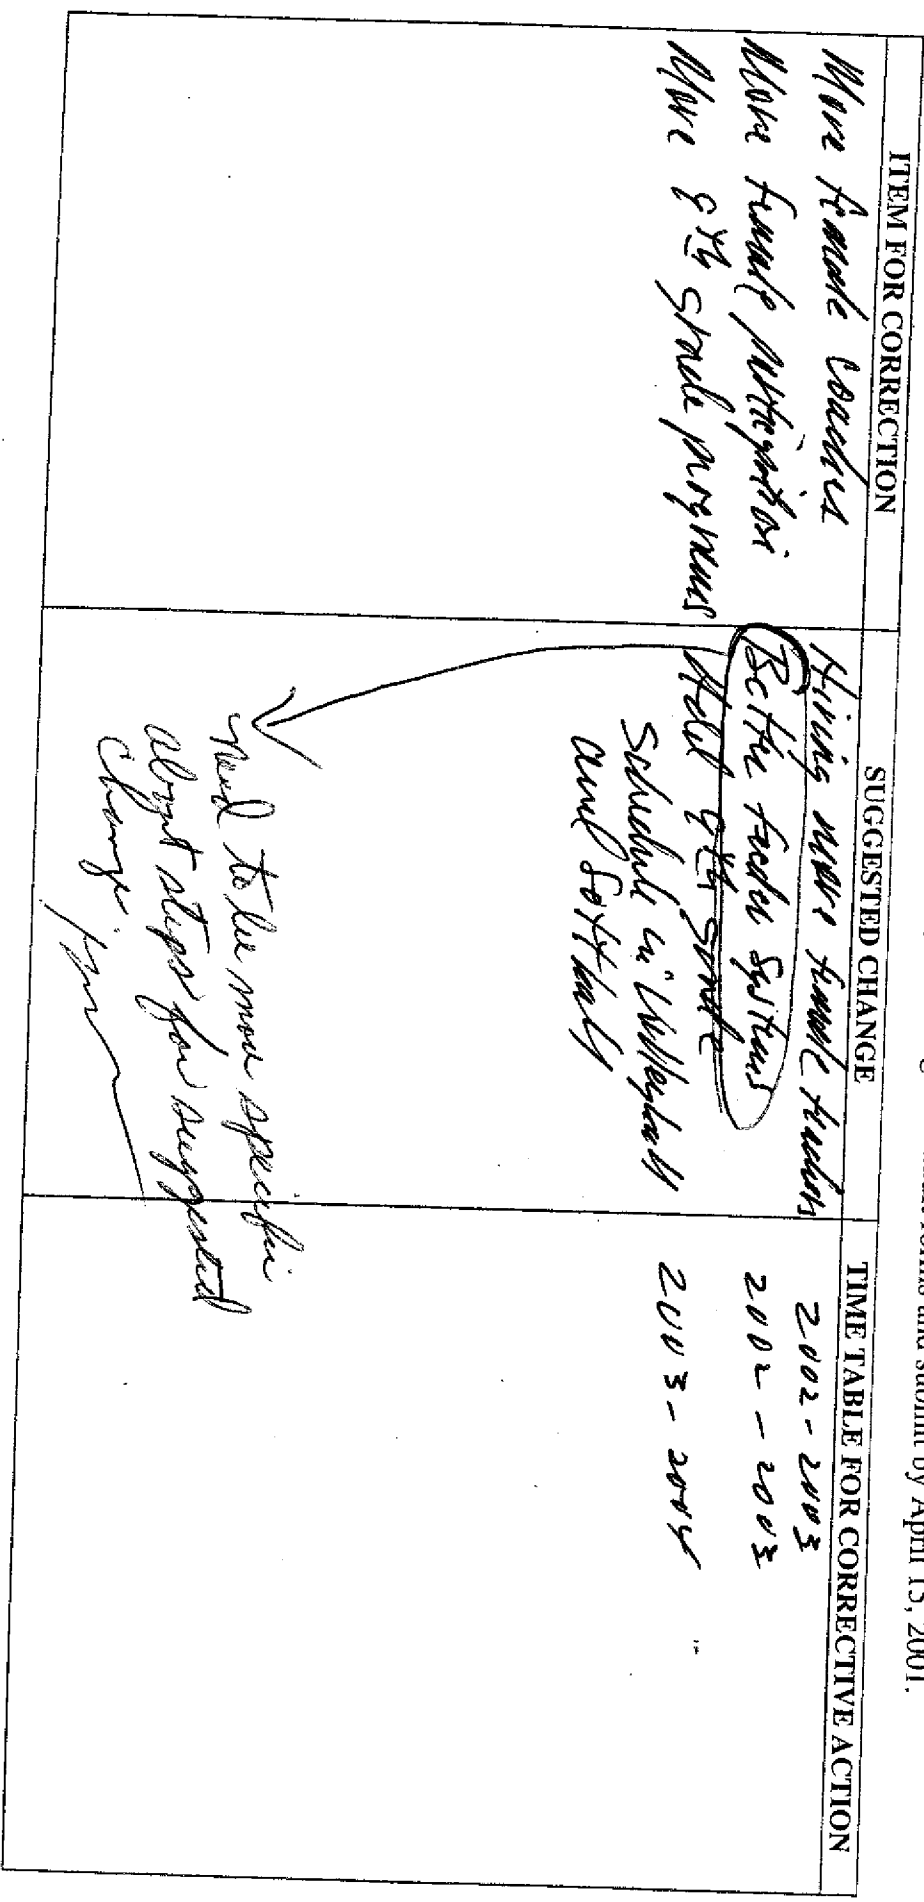 and submit by April 15, 2001.
ITEM FOR CORRECTION
SUGGESTED CHANGE
TIME TABLE FOR CORRECTIVE ACTION
More female coaches
Hiring more female teachers
2002-2003
More female participation
Better feeder systems
2002-2003
More 9th grade programs
Add 9th grade
schedule in Volleyball
and Softball
2003-2004
need to be more specific
about steps for suggested
change